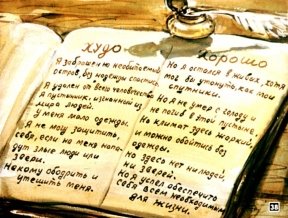 худо
Я заброшен на необитаемый
остров, без надежды спастись.
Я удален от всего человечества.
Я пустынник, изгнанный из
мира людей.
У меня мало одежды.
Я не могу защитить
себя, если на меня напа-
дут злые люди или
звери.
Некому ободрить и
утешить меня.
хорошо
Но я остался в живых, хотя
мог бы утонуть, как мои
спутники.
Но я не умер с голоду и
не погиб в этой пустыне.
Но климат здесь жаркий,
и можно обойтись без
одежды.
Но здесь нет ни людей,
ни зверей.
Но я успел обеспечить
себя всем необходимым
для жизни.
38